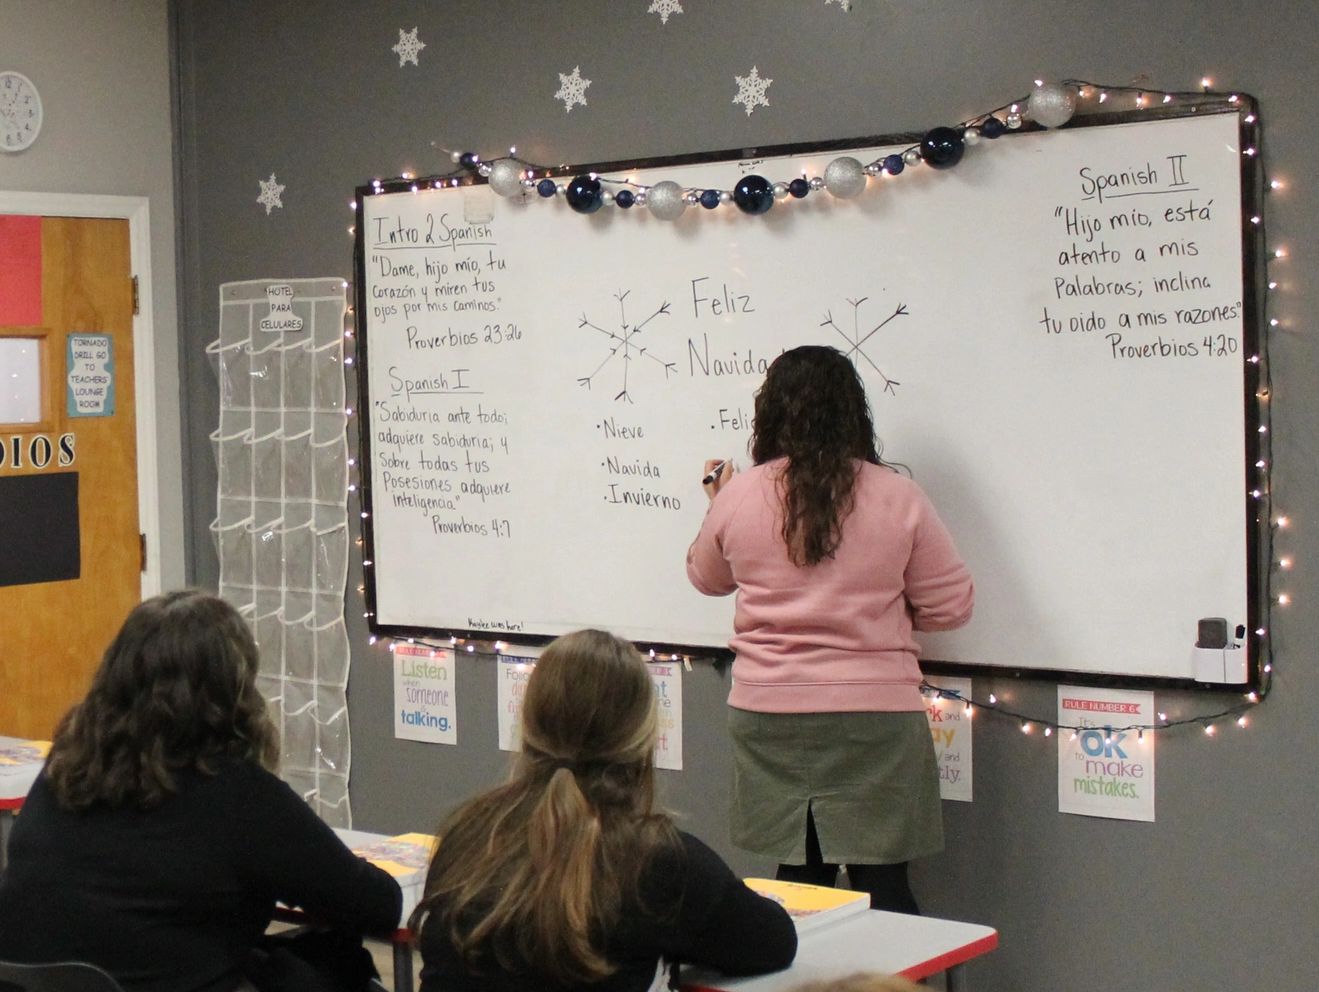 Intro 2 Spanish
"Dame, hijo mío, tu
Corazón y miren tus
ojos por mis caminos."
Proverbios 23:26
Spanish I
"Sabiduría ante todo;
adquiere sabiduría; y
Sobre todas tus
Posesiones adquiere
inteligencia"
Proverbios 4:7
Kaylee was here!
Feliz
Navidad
• Nieve
• Navida
• Invierno
• Feli
Spanish II
"Hijo mío, está
atento a mis
Palabras; inclina
tu oido a mis razones"
Proverbios 4:20
HOTEL
PARA
CELULARES
TORNADO
DRILL GO
TO
TEACHERS'
LOUNGE
ROOM
DIOS
Listen
when
someone
is
talking.
RULE NUMBER 6
It's
OK
to make
mistakes.